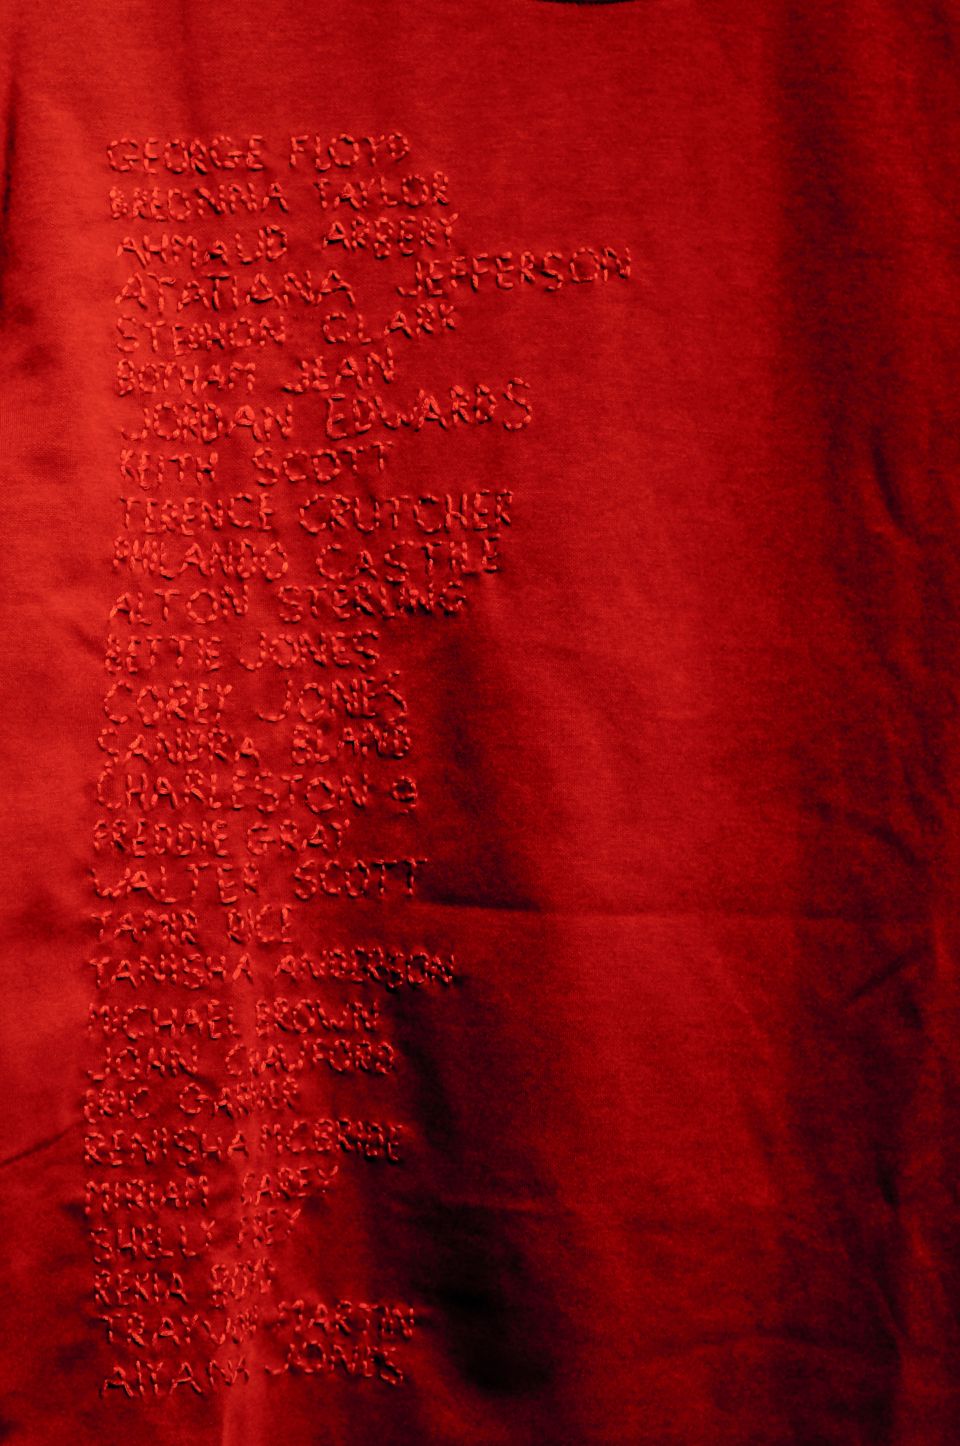 GEORGE FLOYD
BREONNA TAYLOR
AHMAUD ARBERY
ATATIANA JEFFERSON
STEPHON CLARK
BOTHAM JEAN
JORDAN EDWARDS
KEITH SCOTT
TERENCE CRUTCHER
PHILANDO CASTILE
ALTON STERLING
BETTIE JONES
COREY JONES
SANDRA BLAND
CHARLESTON 9
FREDDIE GRAY
WALTER SCOTT
TAMIR RICE
TANISHA ANDERSON
MICHAEL BROWN
JOHN CRAWFORD
ERIC GARNER
RENISHA MCBRIDE
MIRIAM CAREY
SHELLY FREY
REKIA BOYD
TRAYVON MARTIN
AIYANA JONES